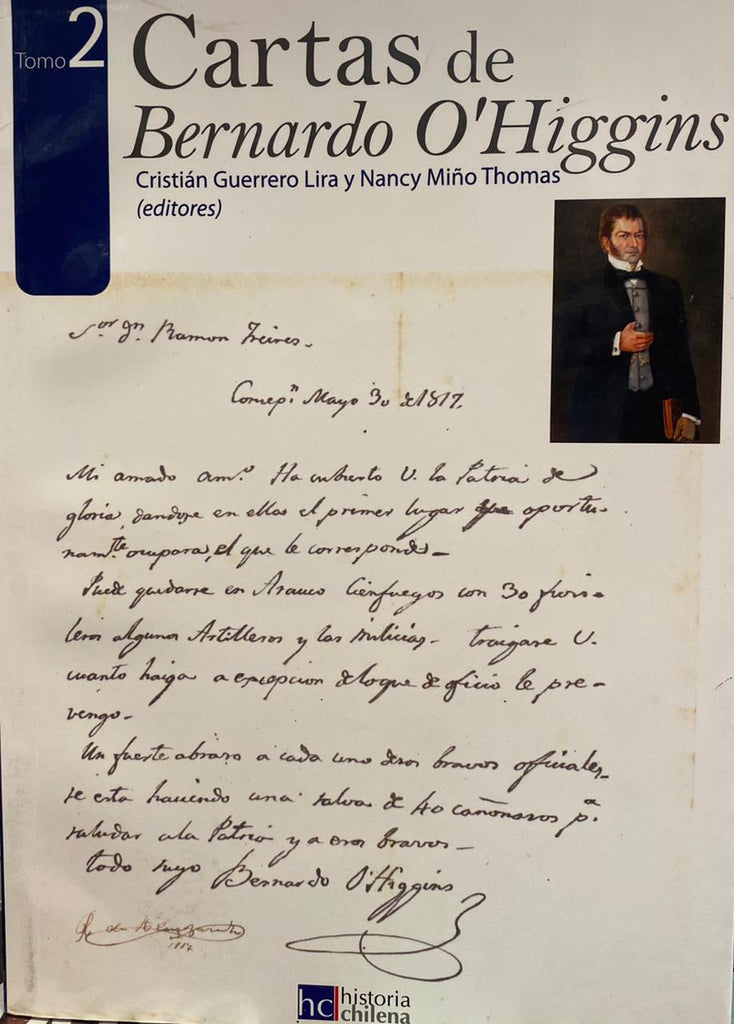 Tomo 2
Cartas de
Bernardo O'Higgins
Cristián Guerrero Lira y Nancy Miño Thomas
(editores)
S.or Dn. Ramon Freires.
Concep.n Mayo 30 de 1817.
Mi amado am.o Ha cubierto V. la Patria de
gloria, dandose en ellas el primer lugar que oportu-
nam.te ocupara, el que le corresponde-
Puede quedarse en Arauco Cienfuegos con 30 fusi-
leros algunos Artilleros y las milicias- traigase V.
cuanto haiga a excepcion de lo que de oficio le pre-
vengo-
Un fuerte abraso a cada uno de esos bravos oficiales,
se esta haciendo una salva de 40 cañonasos p.a
saludar a la Patria y a esos bravos-
todo suyo Bernardo O'Higgins
1817
hc historia
chilena